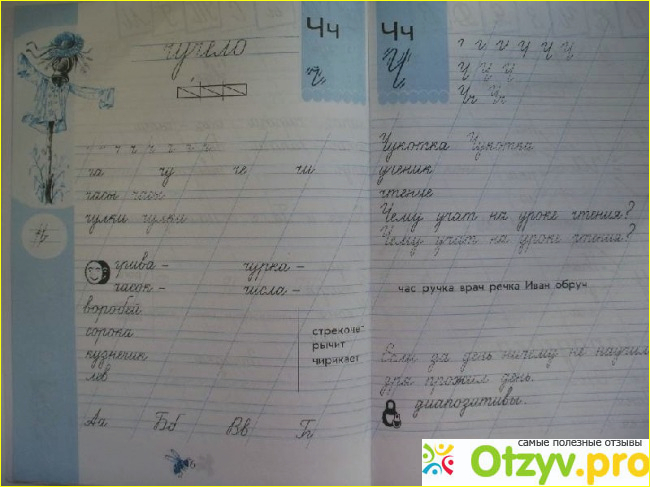 чучело
Чч
ч
ч ч ч ч ч ч
ча чу че чи
часы часы
чулки чулки
грива – чурка –
часок – числа –
воробей
сорока
кузнечик
лев
стрекоче-
рычит
чирикает
Аа Бб Вв Гг
Чч
Ч
Чукотка Чукотка
ученик
чтение
Чему учат на уроке чтения?
Чему учат на уроке чтения?
час ручка врач речка Иван обруч
Если за день ничему не научил
зря прожил день.
диапозитивы.
самые полезные отзывы
Otzyv.pro